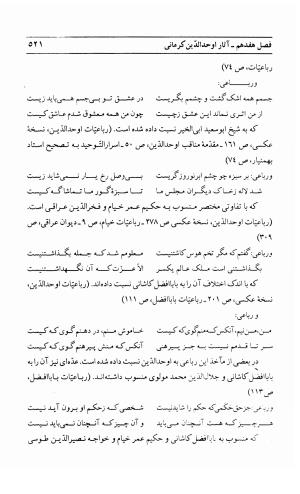 فصل هفدهم ـ آثار اوحدالدّین کرمانی ۵۲۱
رباعیّات، ص ۷۴)
و رباعی:
جسمم همه اشک گشت و چشمم بگریست در عشق تو بی‌جسم همی‌باید زیست
از من اثری نماند این عشق زچیست چون من همه معشوق شدم عاشق کیست
که به شیخ ابوسعید ابی‌الخیر نسبت داده شده است. (رباعیّات اوحدالدّین، نسخهٔ
عکسی، ص ۱۶۱ـ مقدّمهٔ مناقب اوحدالدّین، ص ۵۰ـ اسرارالتّوحید به تصحیح استاد
بهمنیار، ص ۷۴)
ورباعی: بر سبزه چو چشم ابر نوروز گریست بی‌وصل رخ یار نمی‌شاید زیست
شد لاله زخاک دیگران مجلس ما تا سبزهٔ گور ما تماشاگه کیست
که با تفاوتی مختصر منسوب به حکیم عمر خیام و فخرالدین عراقی است.
(رباعیّات اوحدالدین، نسخهٔ عکسی ص ۲۷۸ـ رباعیّات خیام، ص ۹ـ دیوان عراقی، ص
۳۰۹)
ورباعی: گفتم که مگر تخم هوس کاشتنیست معلومم شد که جمله بگذاشتنیست
بگذاشتنی است ملک عالم یکسر الاّ عزّت که آن نگهداشتنیست
که با اندک اختلاف آن را به باباافضل کاشانی نسبت داده‌اند. (رباعیّات اوحدالدین،
نسخهٔ عکسی، ص ۲۰۱ـ رباعیّات باباافضل، ص ۱۱۱)
و رباعی:
من،من‌نیم، آنکس‌که‌منم‌گوی‌که‌کیست خاموش منم، در دهنم گوی‌که‌کیست
سر تا قدمم نیست به جز پیرهنی آنکس که منش پیرهنم گوی‌که‌کیست
در بعضی از مآخذ این رباعی به اوحدالدین نسبت داده شده است. عدّه‌ای نیز آن را به
باباافضل کاشانی و جلال‌الدین محمد مولوی منسوب داشته‌اند. (رباعیّات باباافضل،
ص ۱۱۳)
ورباعی: جزحق‌حکمی‌که حکم را شایدنیست شخصی که زحکم او برون آید نیست
هرچیز که هست آنچنان می‌باید و آن چیز که آنچنان نمی‌باید نیست
که منسوب به باباافضل کاشانی و حکیم عمر خیام و خواجه نصیرالدین طوسی